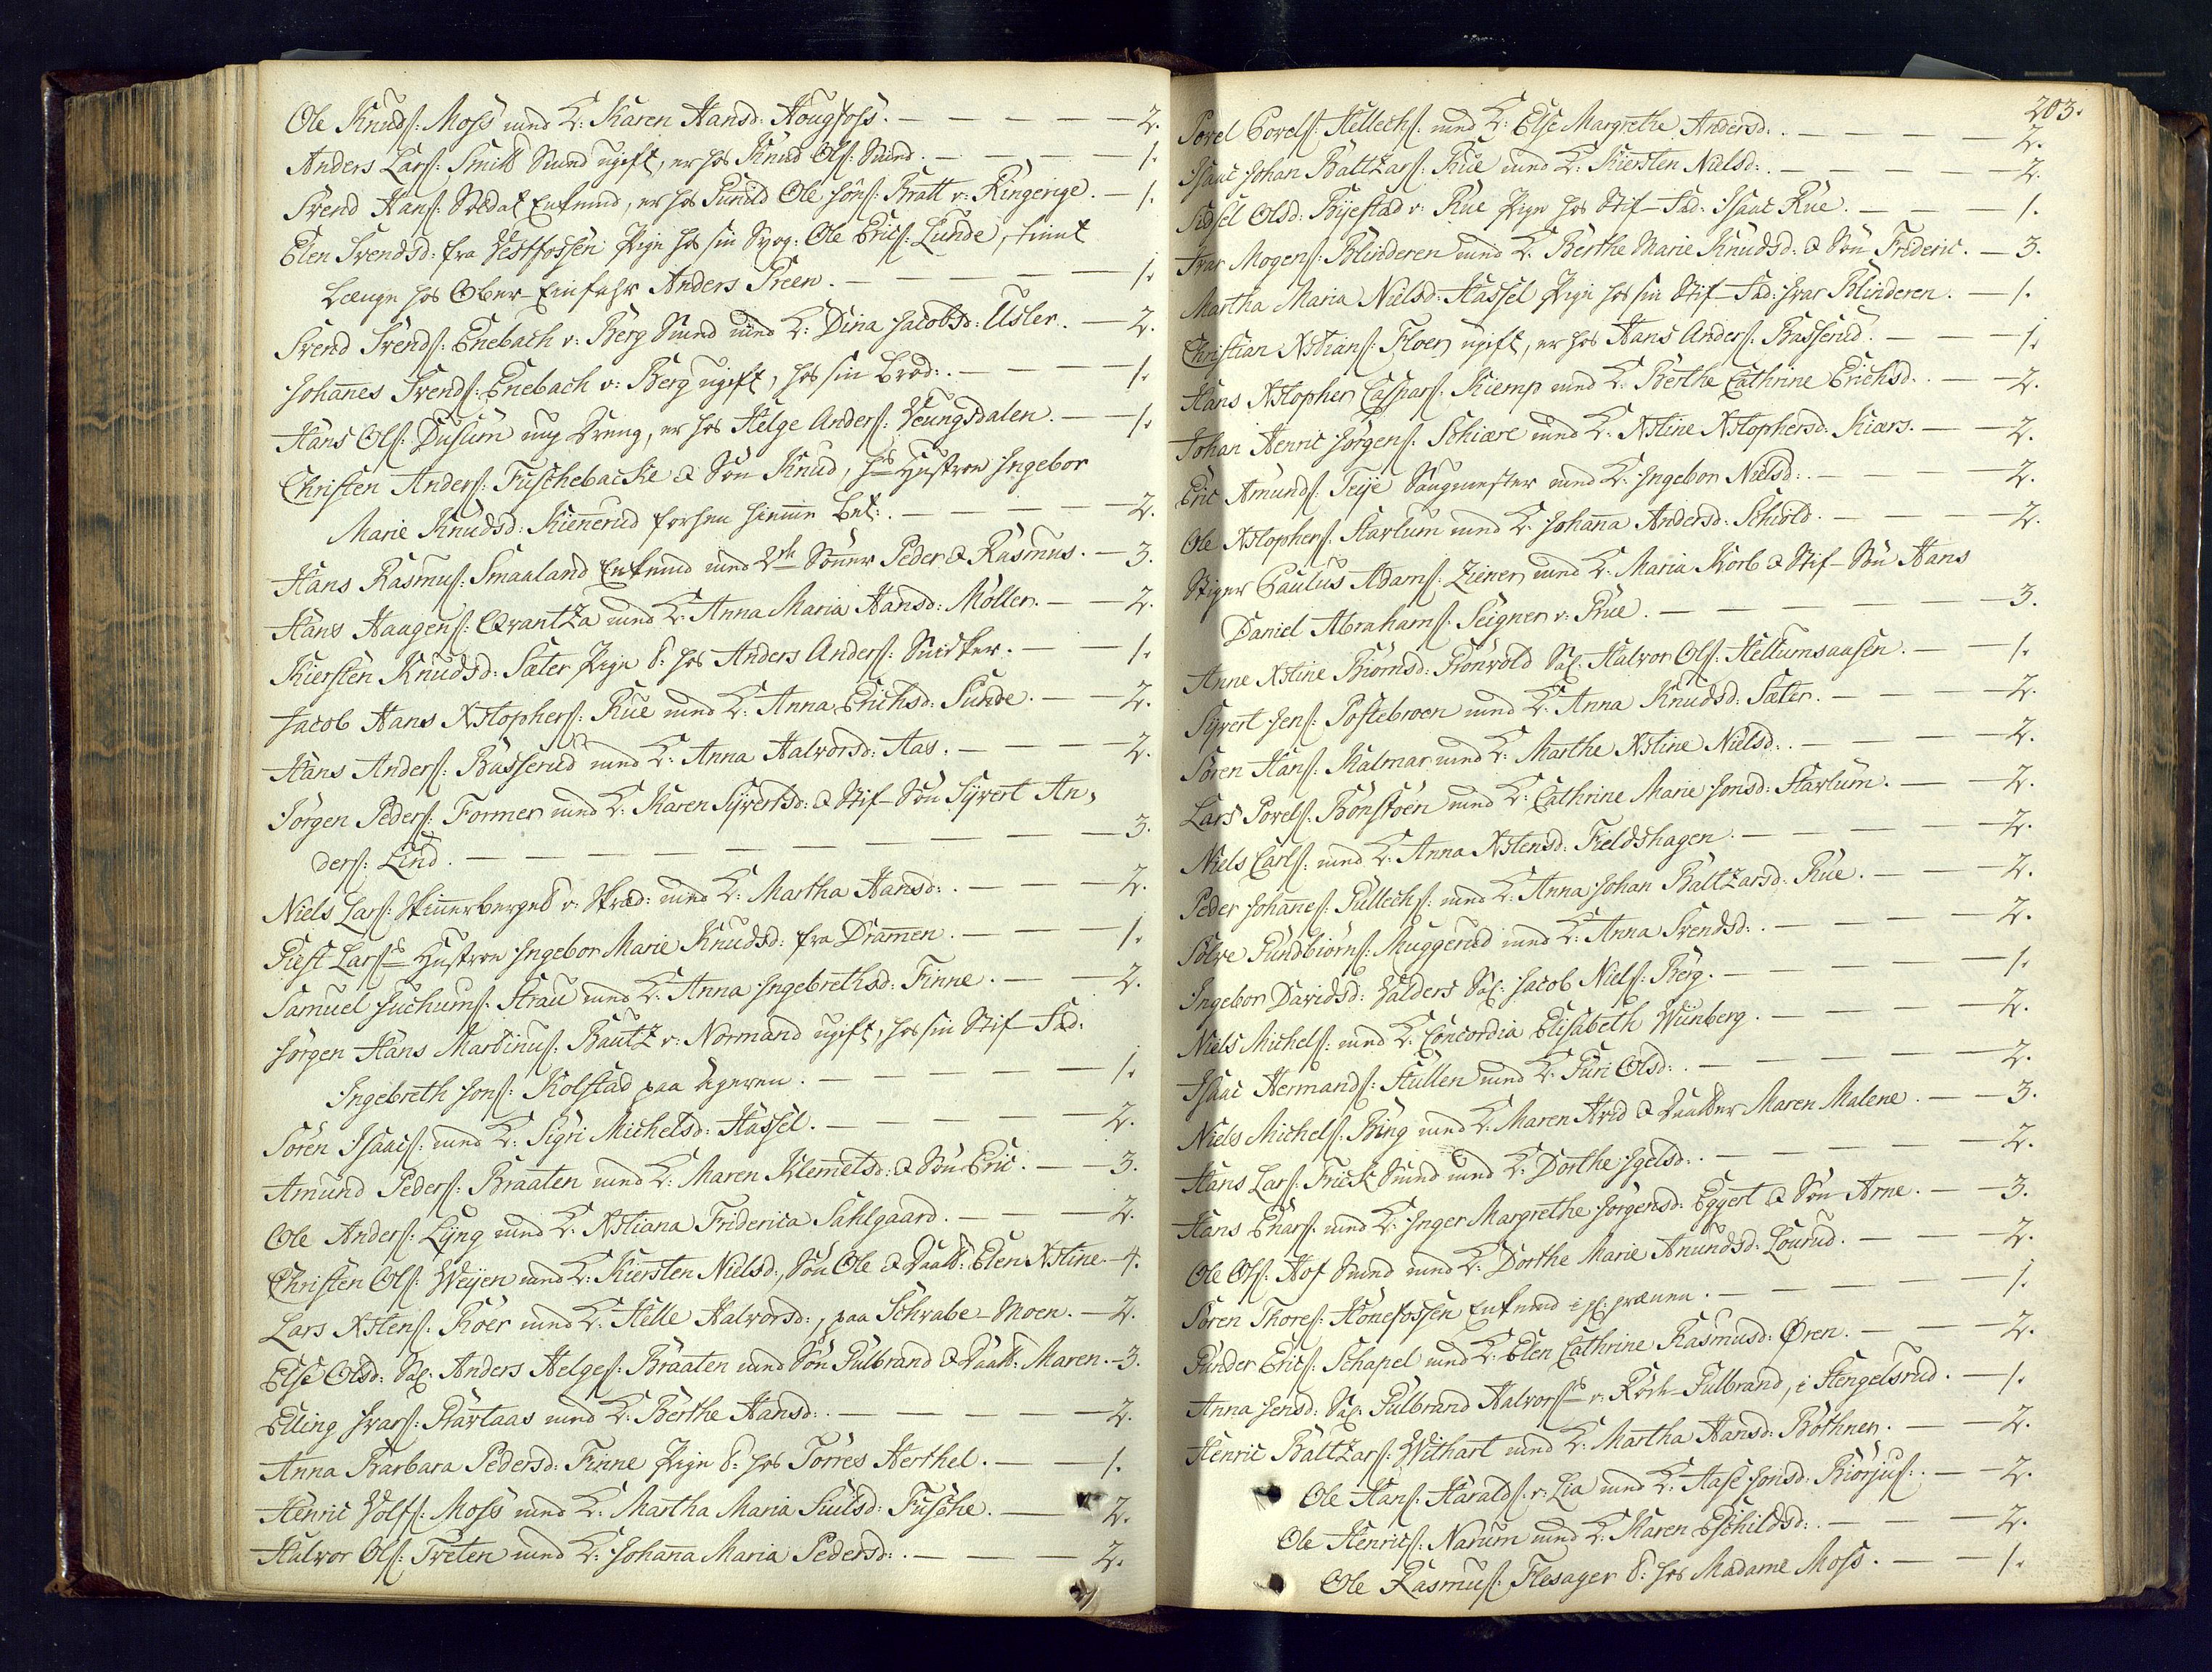 Ole Knuds: Moss med K: Karen Hansd: Hougfoss. — 2.
Anders Lars: Smitt Smed ugift, er hos Knud Ols: Smed. — 1.
Svend Hans: Soldat Enkemd, er hos Gunild Ole Jöns: Bratt v: Ringerige. — 1.
Elen Svendsd: fra Vestfossen Pige hos sin Svog: Ole Erics: Lunde, tient
længe hos Ober-Einfahr Anders Steen. — 1.
Svend Svends: Enebach v: Berg Smed med K: Dina Jacobsd: Usler. — 2.
Johannes Svends: Enebach v: Berg ugift, hos sin Brod:. — 1.
Hans Ols: Dusum ung Dreng, er hos Helge Anders: Veungsdalen. — 1.
Christen Anders: Fuschebache & Sön Knud, hs Hustroe Ingebor
Marie Knudsd: Kiennerud forhen hiemme Bet:. — 2.
Hans Rasmus: Smaaland Enkemd med 2de Sönner Peder & Rasmus. — 3.
Hans Haagens: Qvantza med K: Anna Maria Hansd: Möller. — 2.
Kiersten Knudsd: Sæter Pige t: hos Anders Anders: Snidker. — 1.
Jacob Hans Xstophers: Rue med K: Anna Erichsd: Sunde. — 2.
Hans Anders: Basserud med K: Anna Halvorsd: Aas. — 2.
Jörgen Peders: Former med K: Karen Syvertsd: & Stif-Sön Syvert An,
ders: Lind. — 3.
Niels Lars: Skinnerberget v: Skræd: med K: Martha Hansd:. — 2.
Giest Larses Hustroe Ingebor Marie Knudsd: fra Drammen. — 1.
Samuel Juchums: Strau med K: Anna Ingebrethsd: Finne. — 2.
Jörgen Hans Martinus: Bautz v: Normand ugift, hos sin Stif-Fad:
Ingebreth Jons: Kolstad paa Ageren. — 1.
Sören Isaacs: med K: Sigri Michelsd: Hassel. — 2.
Amund Peders: Braaten med K: Maren Klemetsd: & Sön Eric. — 3.
Ole Anders: Lyng med K: Xstiana Friderica Sahlgaard. — 2.
Christen Ols: Weyen med K: Kiersten Nielsd:, Sön Ole & Daatt: Elen Xstine — 4.
Lars Xstens: Roer med K: Helle Halvorsd:, paa Schrabe-Moen. — 2.
Else Olsd: Sal. Anders Helges: Braaten med Sön Gulbrand & Daatt: Maren. — 3.
Elling Ivars: Ravtaas med K: Berthe Hansd:. — 2.
Anna Barbara Pedersd: Finne Pige t: hos Torres Herthel. — 1.
Henric Volfs: Moss med K: Martha Maria Juulsd: Fusche. — 2.
Halvor Ols: Treten med K: Johanna Maria Pedersd:. — 2.
203.
Povel Povels: Hellechs: med K: Else Margrethe Andersd:. — 2.
Isaac Johan Baltzars: Rue med K: Kiersten Nielsd:. — 2.
Sidsel Olsd: Byestad v: Rue Pige hos Stif-Fad: Isaac Rue. — 1.
Ivar Mogens: Blinderen med K: Berthe Marie Knudsd: & Sön Frideric. — 3.
Martha Maria Nielsd: Hassel Pige hos sin Stif-Fad: Ivar Blinderen. — 1.
Christian Xstians: Floer ugift, er hos Hans Anders: Basserud. — 1.
Hans Xstopher Caspars: Kiemp med K: Berthe Cathrine Erichsd. — 2.
Johan Henric Jörgens: Schiære med K: Xstine Xstophersd: Kiærs. — 2.
Eric Amunds: Teije Saugmester med K: Ingebor Nielsd:. — 2.
Ole Xstophers: Starlum med K: Johanna Andersd: Schiold. — 2.
Stiger Paulus Adams: Ziener med K: Maria Korb & Stif-Sön Hans
Daniel Abrahams: Seigner v: Prue. — 3.
Anne Xstine Biornsd: Bronvold Sal: Halvor Ols: Hellumsaasen. — 1.
Syvert Jens: Postebroen med K: Anna Knudsd: Sæter. — 2.
Sören Hans: Kalmar med K: Marthe Xstine Nielsd:. — 2.
Lars Povels: Bonstoen med K: Cathrine Marie Jonsd: Starlum. — 2.
Niels Carls: med K: Anna Xstensd: Fieldshagen. — 2.
Peder Johannes: Gullechs: med K: Anna Johan Baltzarsd: Rue. — 2.
Solve Gundbiorns: Muggerud med K: Anna Svendsd:. — 2.
Ingebor Davidsd: Valders Sal: Jacob Niels: Berg. — 1.
Niels Michels: med K: Concordia Elisabeth Wunberg. — 2.
Isaac Hermands: Hullen med K: Guri Olsd:. — 2.
Niels Michels: Bing med K: Maren Arid & Daatter Maren Malene. — 3.
Hans Lars: Frick Smed med K: Dorthe Igelsd:. — 2.
Hans Enars: med K: Inger Margrethe Jörgensd: Eggert & Sön Arne. — 3.
Ole Ols: Hof Smed med K: Dorthe Marie Anundsd: Lourud. — 2.
Sören Thores: Hönefossen Enkemd i gl: grænnen. — 1.
Gunder Erics: Schapel med K: Elen Cathrine Rasmusd: Øren. — 2.
Anna Jensd: Sal: Gulbrand Halvorses v: Röch-Gulbrand, i Stengelsrud. — 1.
Henric Baltzars: Withart med K: Martha Hansd: Böthner. — 2.
Ole Hans: Haralds: v: Lia med K: Aase Jonsd: Biörjus:. — 2.
Ole Henrics: Narum med K: Karen Eschildsd:. — 2.
Ole Rasmus: Flesager t: hos Madame Moss. — 1.